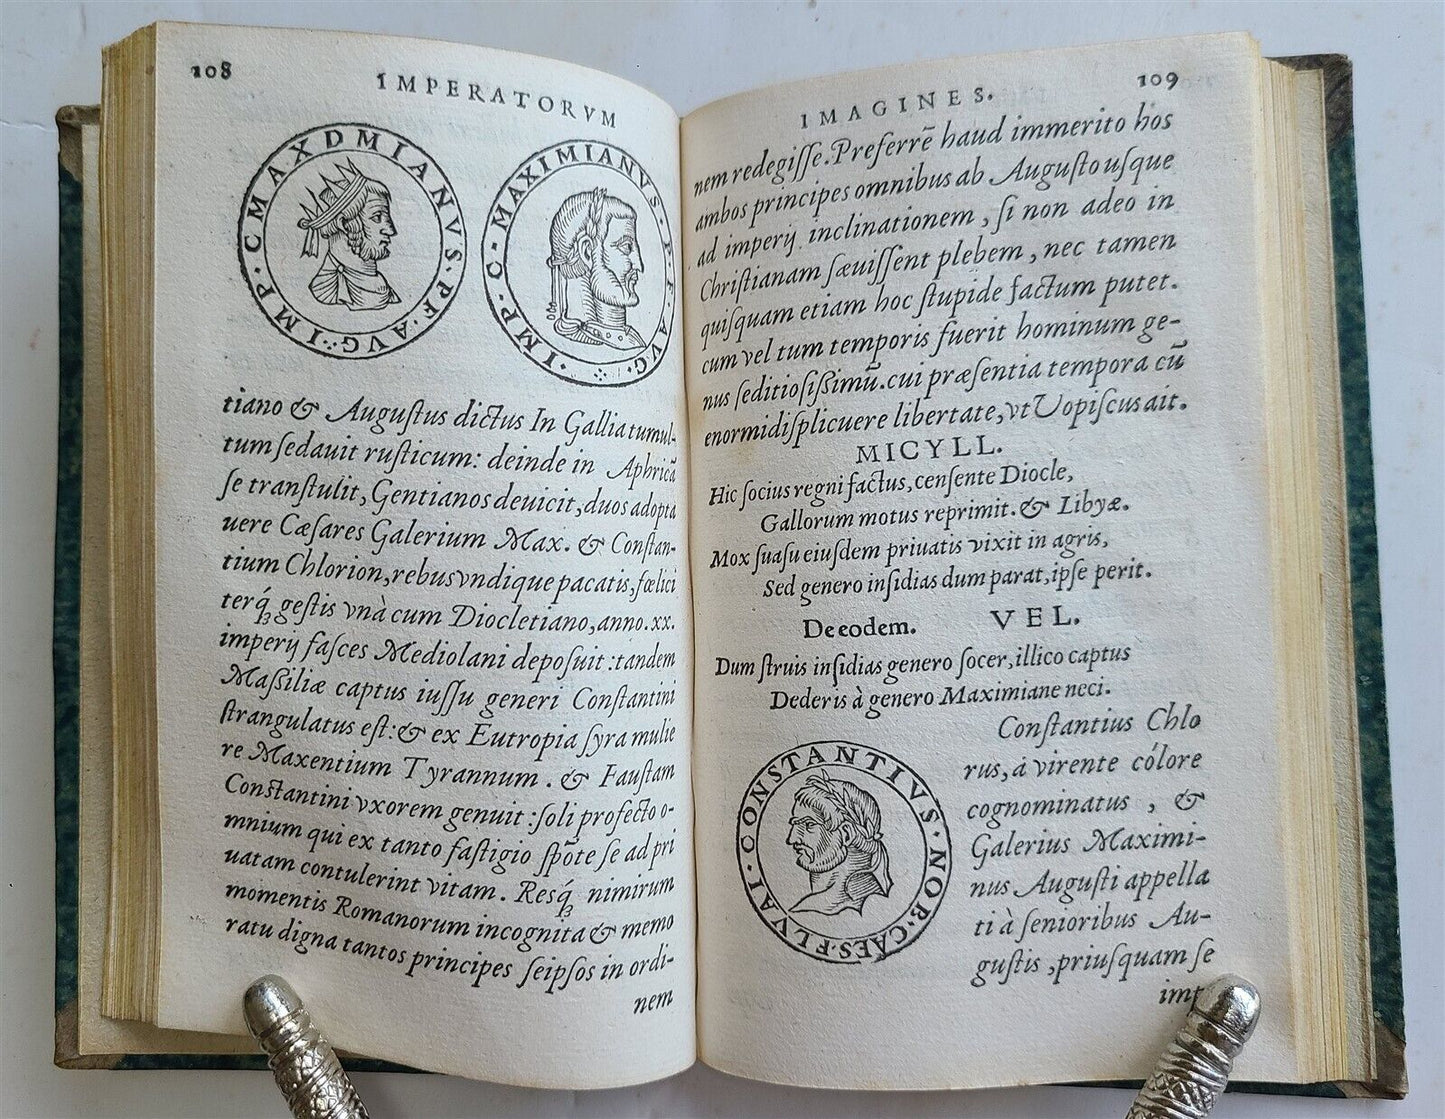 108
IMPERATORVM
IMP·C MAXDMIANVS·PF·AVG
IMP·C·MAXIMIANVS·P·F·AVG·
tiano & Auguſtus dictus In Gallia tumul-
tum ſedauit ruſticum: deinde in Aphricā
ſe tranſtulit, Gentianos deuicit, duos adopta
uere Cæſares Galerium Max. & Conſtan-
tium Chlorion, rebus vndique pacatis, fœlici
terq́; geſtis vnà cum Diocletiano, anno. xx.
imperij faſces Mediolani depoſuit: tandem
Maßiliæ captus iuſſu generi Conſtantini
ſtrangulatus eſt: & ex Eutropia ſyra mulie
re Maxentium Tyrannum . & Fauſtam
Conſtantini vxorem genuit: ſoli profecto o-
mnium qui ex tanto faſtigio ſpōte ſe ad pri
uatam contulerint vitam. Resq́; nimirum
momentis Romanorum incognita & memo
ratu digna tantos principes ſeipſos in ordi-
nem
IMAGINES.
109
nem redegiſſe. Preferrē haud immerito hos
ambos principes omnibus ab Auguſto uſque
ad imperij inclinationem, ſi non adeo in
Chriſtianam ſæuiſſent plebem, nec tamen
quiſquam etiam hoc ſtupide factum putet.
cum vel tum temporis fuerit hominum ge-
nus ſeditioſißimū. cui præſentia tempora cū
enormi diſplicuere libertate, vt Vopiſcus ait.
MICYLL.
Hic ſocius regni factus, cenſente Diocle,
Gallorum motus reprimit. & Libyæ.
Mox ſuaſu eiuſdem priuatis vixit in agris,
Sed genero inſidias dum parat, ipſe perit.
De eodem. VEL.
Dum ſtruis inſidias genero ſocer, illico captus
Dederis à genero Maximiane neci.
FL VAI·CONSTANTIVS·NOB·CAES·
Conſtantius Chlo
rus, à virente cólore
cognominatus, &
Galerius Maximi-
nus Auguſti appella
ti à ſenioribus Au-
guſtis, priuſquam ſe